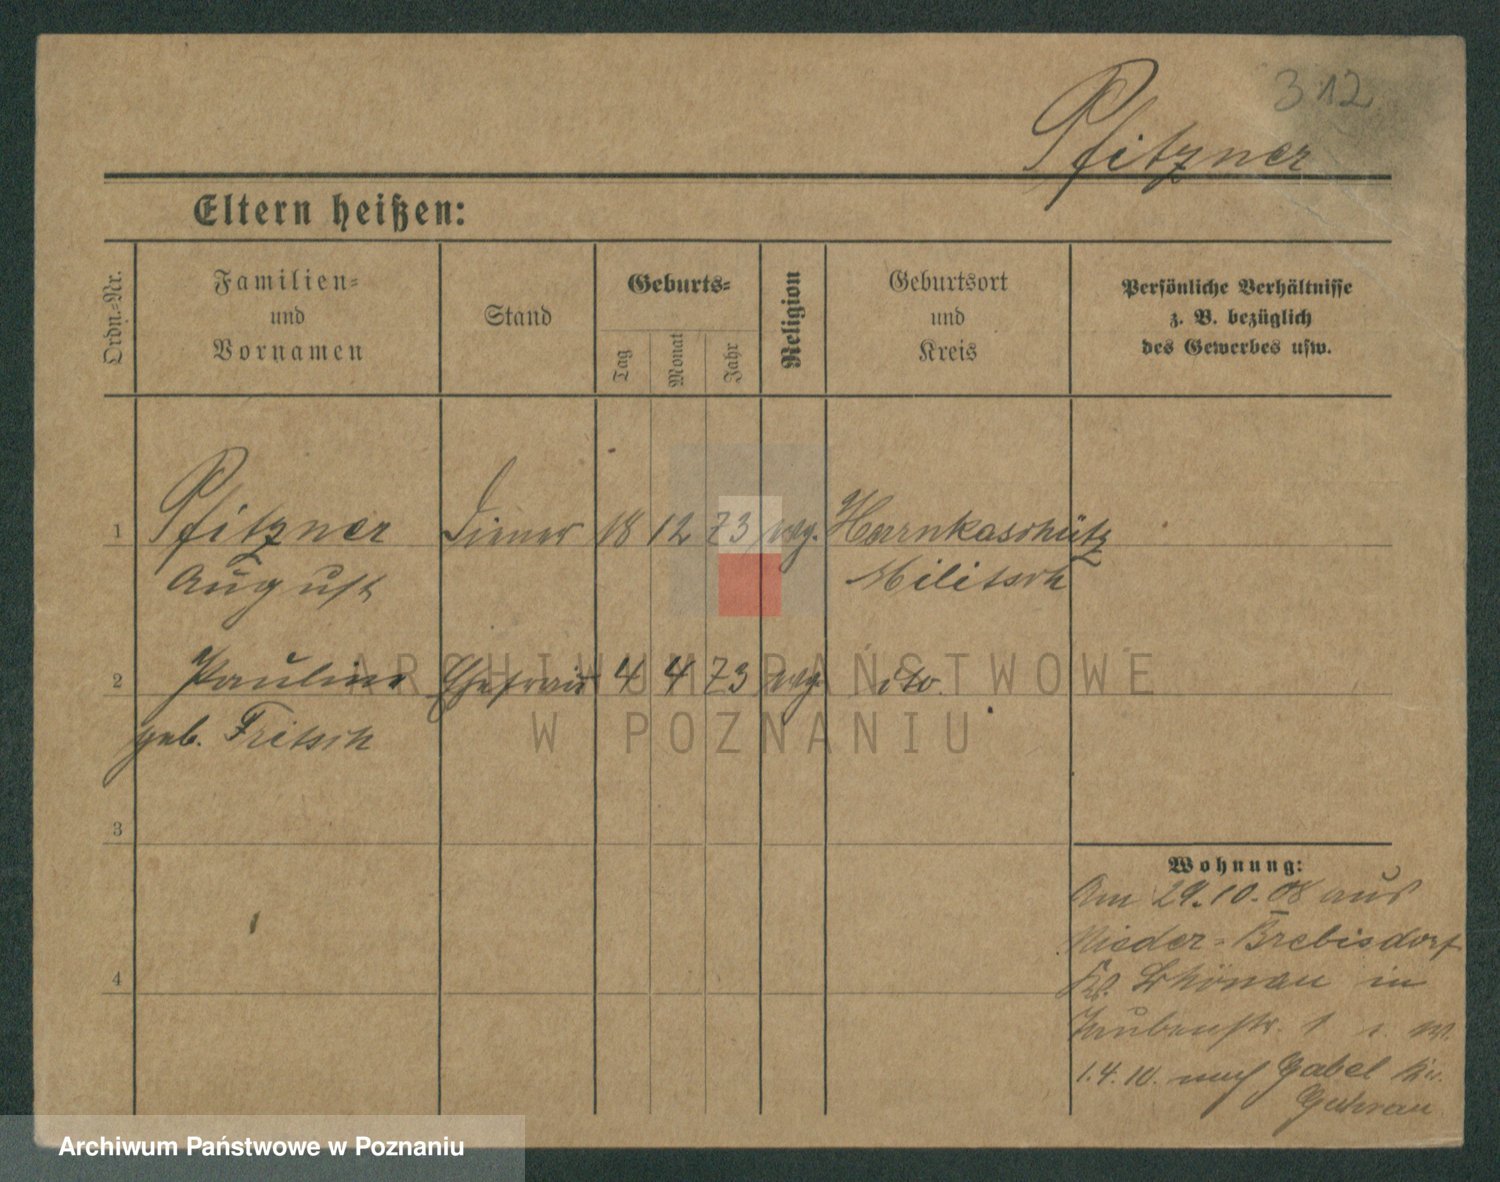 312
Pfitzner
Eltern heißen:
Ordn.-Nr.
Familien-
und
Vornamen
Stand
Geburts-
Tag
Monat
Jahr
Religion
Geburtsort
und
Kreis
Persönliche Verhältnisse
z. B. bezüglich
des Gewerbes usw.
1 Pfitzner Diener 18 12 73 evg. Herrnkaschütz
August Militsch
2 Pauline Ehefrau 4 4 73 evg. dto.
geb. Fritsch
3
4
Wohnung:
Am 29.10.08 aus
Nieder-Brebisdorf
Kr. Schönau in
str. 1
1.4.10. nach Gabel Kr.
Guhrau
ARCHIWUM PAŃSTWOWE
W POZNANIU
Archiwum Państwowe w Poznaniu